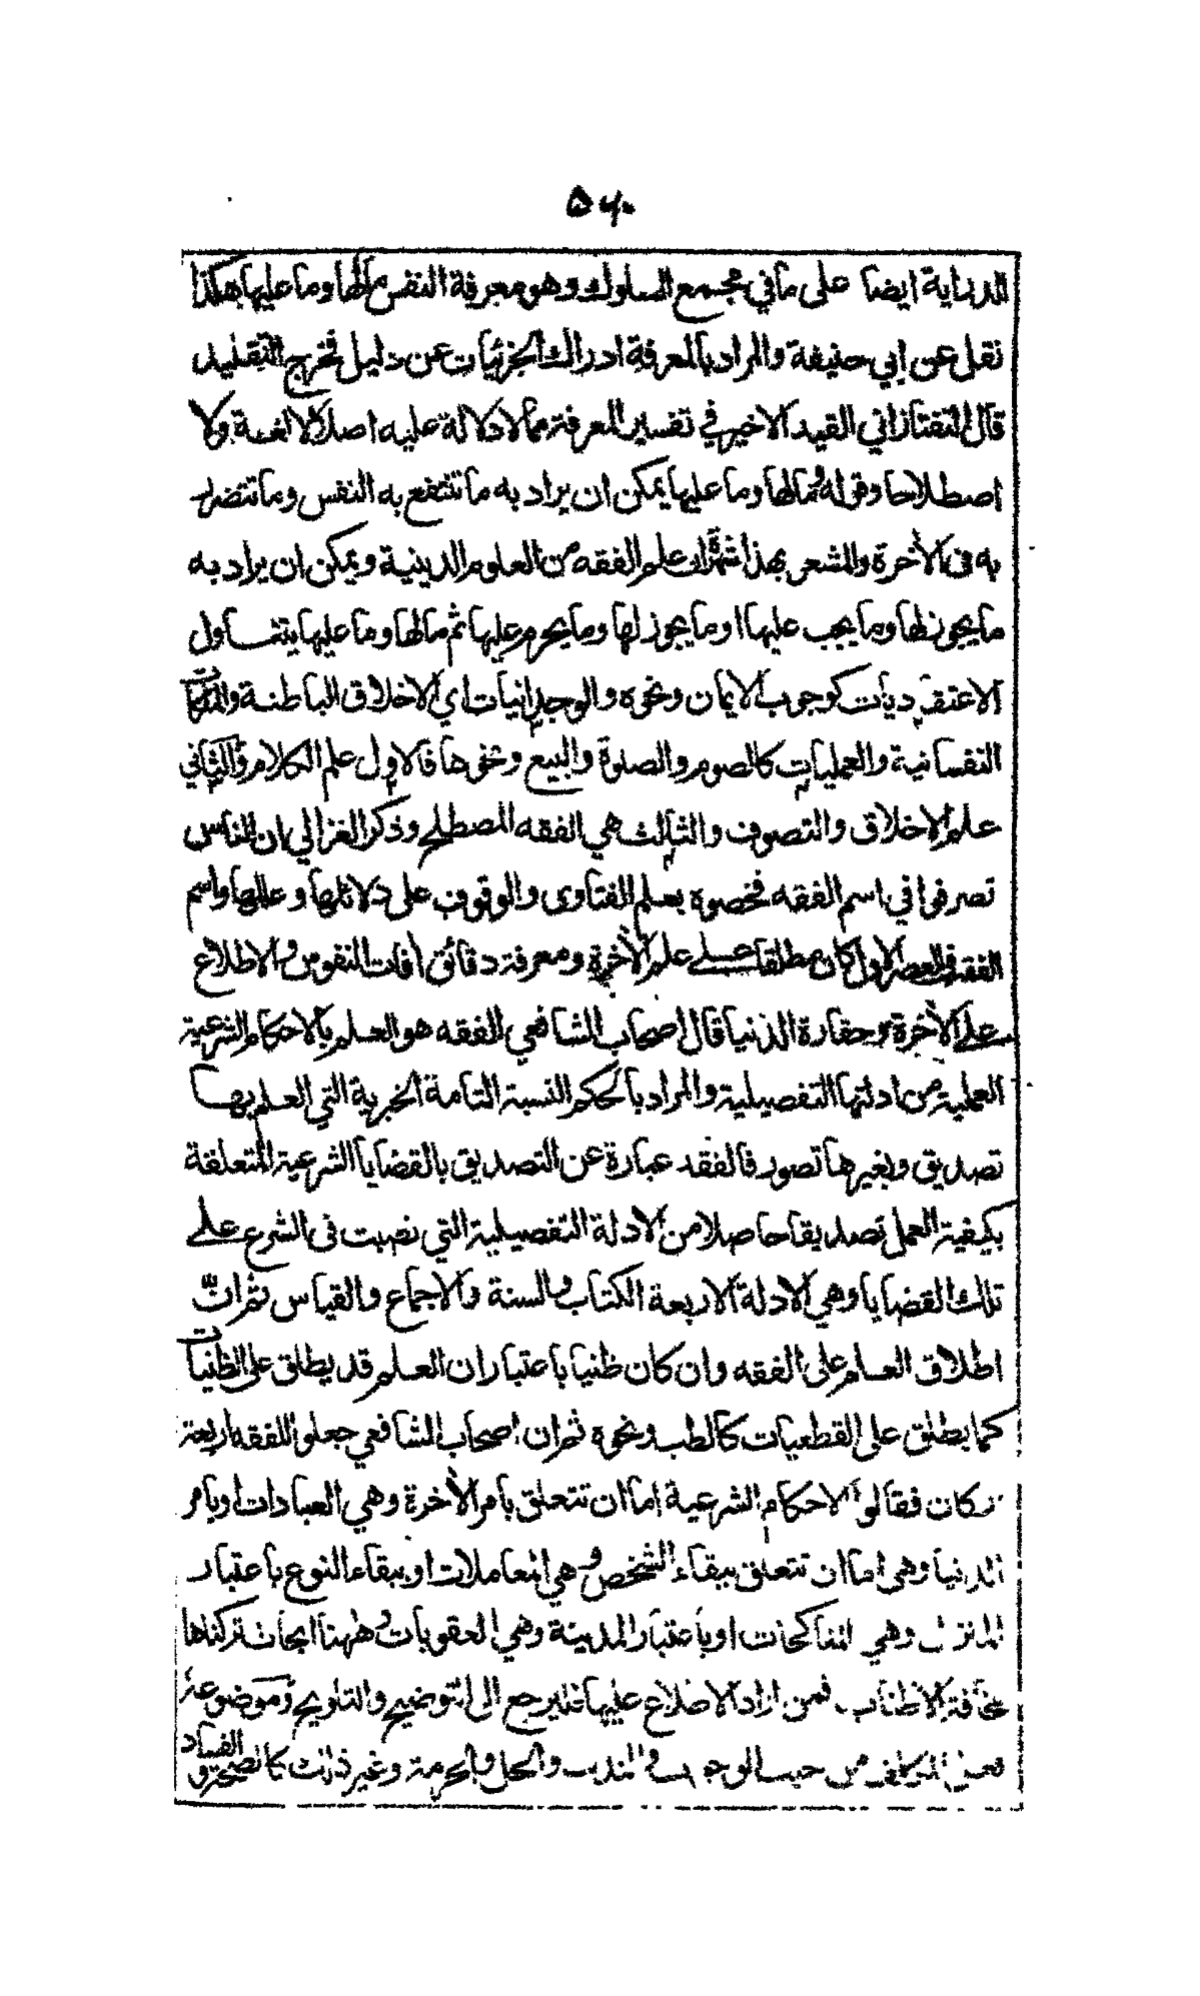 ٥٦٠
الدراية ايضا على ما في مجمع السلوك وهو معرفة النفس مالها وما عليها هكذا
نقل عن ابي حنيفة والمراد بالمعرفة ادراك الجزئيات عن دليل فخرج التقليد
قال التفتازاني القيد الاخير في تفسير المعرفة مما لا دلالة عليه اصلا لا لغة ولا
اصطلاحا وقوله ومالها وما عليها يمكن ان يراد به ما تنتفع به النفس وما تتضرر
به في الآخرة والمشعر بهذا شهرة ان علم الفقه من العلوم الدينية ويمكن ان يراد به
ما يجوز لها وما يجب عليها او ما يجوز لها وما يحرم عليها ثم مالها وما عليها يتناول
الاعتقاديات كوجوب الايمان ونحوه والوجدانيات اي الاخلاق الباطنة والملكات
النفسانية والعمليات كالصوم والصلوة والبيع ونحوها فالاول علم الكلام والثاني
علم الاخلاق والتصوف والثالث هي الفقه المصطلح وذكر الغزالي ان الناس
تصرفوا في اسم الفقه فخصوه بعلم الفتاوى والوقوف على دلائلها وعللها واسم
الفقه في العصر الاول كان مطلقا على علم الآخرة ومعرفة دقائق آفات النفوس والاطلاع
على الآخرة وحقارة الدنيا قال اصحاب الشافعي الفقه هو العلم بالاحكام الشرعية
العملية من ادلتها التفصيلية والمراد بالحكم النسبة التامة الخبرية التي العلم بها
تصديق وبغيرها تصور فالفقه عبارة عن التصديق بالقضايا الشرعية المتعلقة
بكيفية العمل تصديقا حاصلا من الادلة التفصيلية التي نصبت في الشرع على
تلك القضايا وهي الادلة الاربعة الكتاب والسنة والاجماع والقياس ثم ان
اطلاق العلم على الفقه وان كان ظنيا باعتبار ان العلم قد يطلق على الظنيات
كما يطلق على القطعيات كالطب ونحوه ثم ان اصحاب الشافعي جعلوا للفقه اربعة
اركان فقالوا الاحكام الشرعية اما ان تتعلق بامر الآخرة وهي العبادات او بامر
الدنيا وهي اما ان تتعلق ببقاء الشخص وهي المعاملات او ببقاء النوع باعتبار
المنزل وهي المناكحات او باعتبار المدينة وهي العقوبات وههنا ابحاث تركناها
مخافة الاطناب فمن اراد الاطلاع عليها فليرجع الى التوضيح والتلويح وموضوعه
فعل المكلف من حيث الوجوب والندب والحل والحرمة وغير ذلك كالصحة والفساد